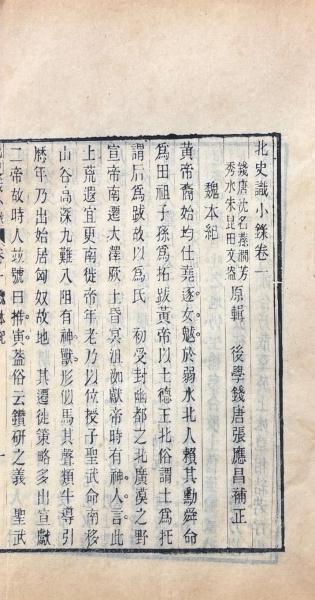 北史識小錄卷一
錢唐沈名蓀澗芳
秀水朱昆田文盎
原輯　後學錢唐張應昌補正
魏本紀
黃帝裔始均仕堯逐女魃於弱水北人賴其勳舜命
爲田祖子孫爲拓跋黃帝以土德王北俗謂土爲托
謂后爲跋故以爲氏　初受封幽都之北廣漠之野
宣帝南遷大澤厥土昏冥沮洳獻帝時有神人言此
土荒遐宜更南徙帝年老乃以位授子聖武命南移
山谷高深九難八阻有神獸形似馬其聲類牛導引
歷年乃出始居匈奴故地　其遷徙策略多出宣獻
二帝故時人竝號曰推寅葢俗云鑽研之義　聖武